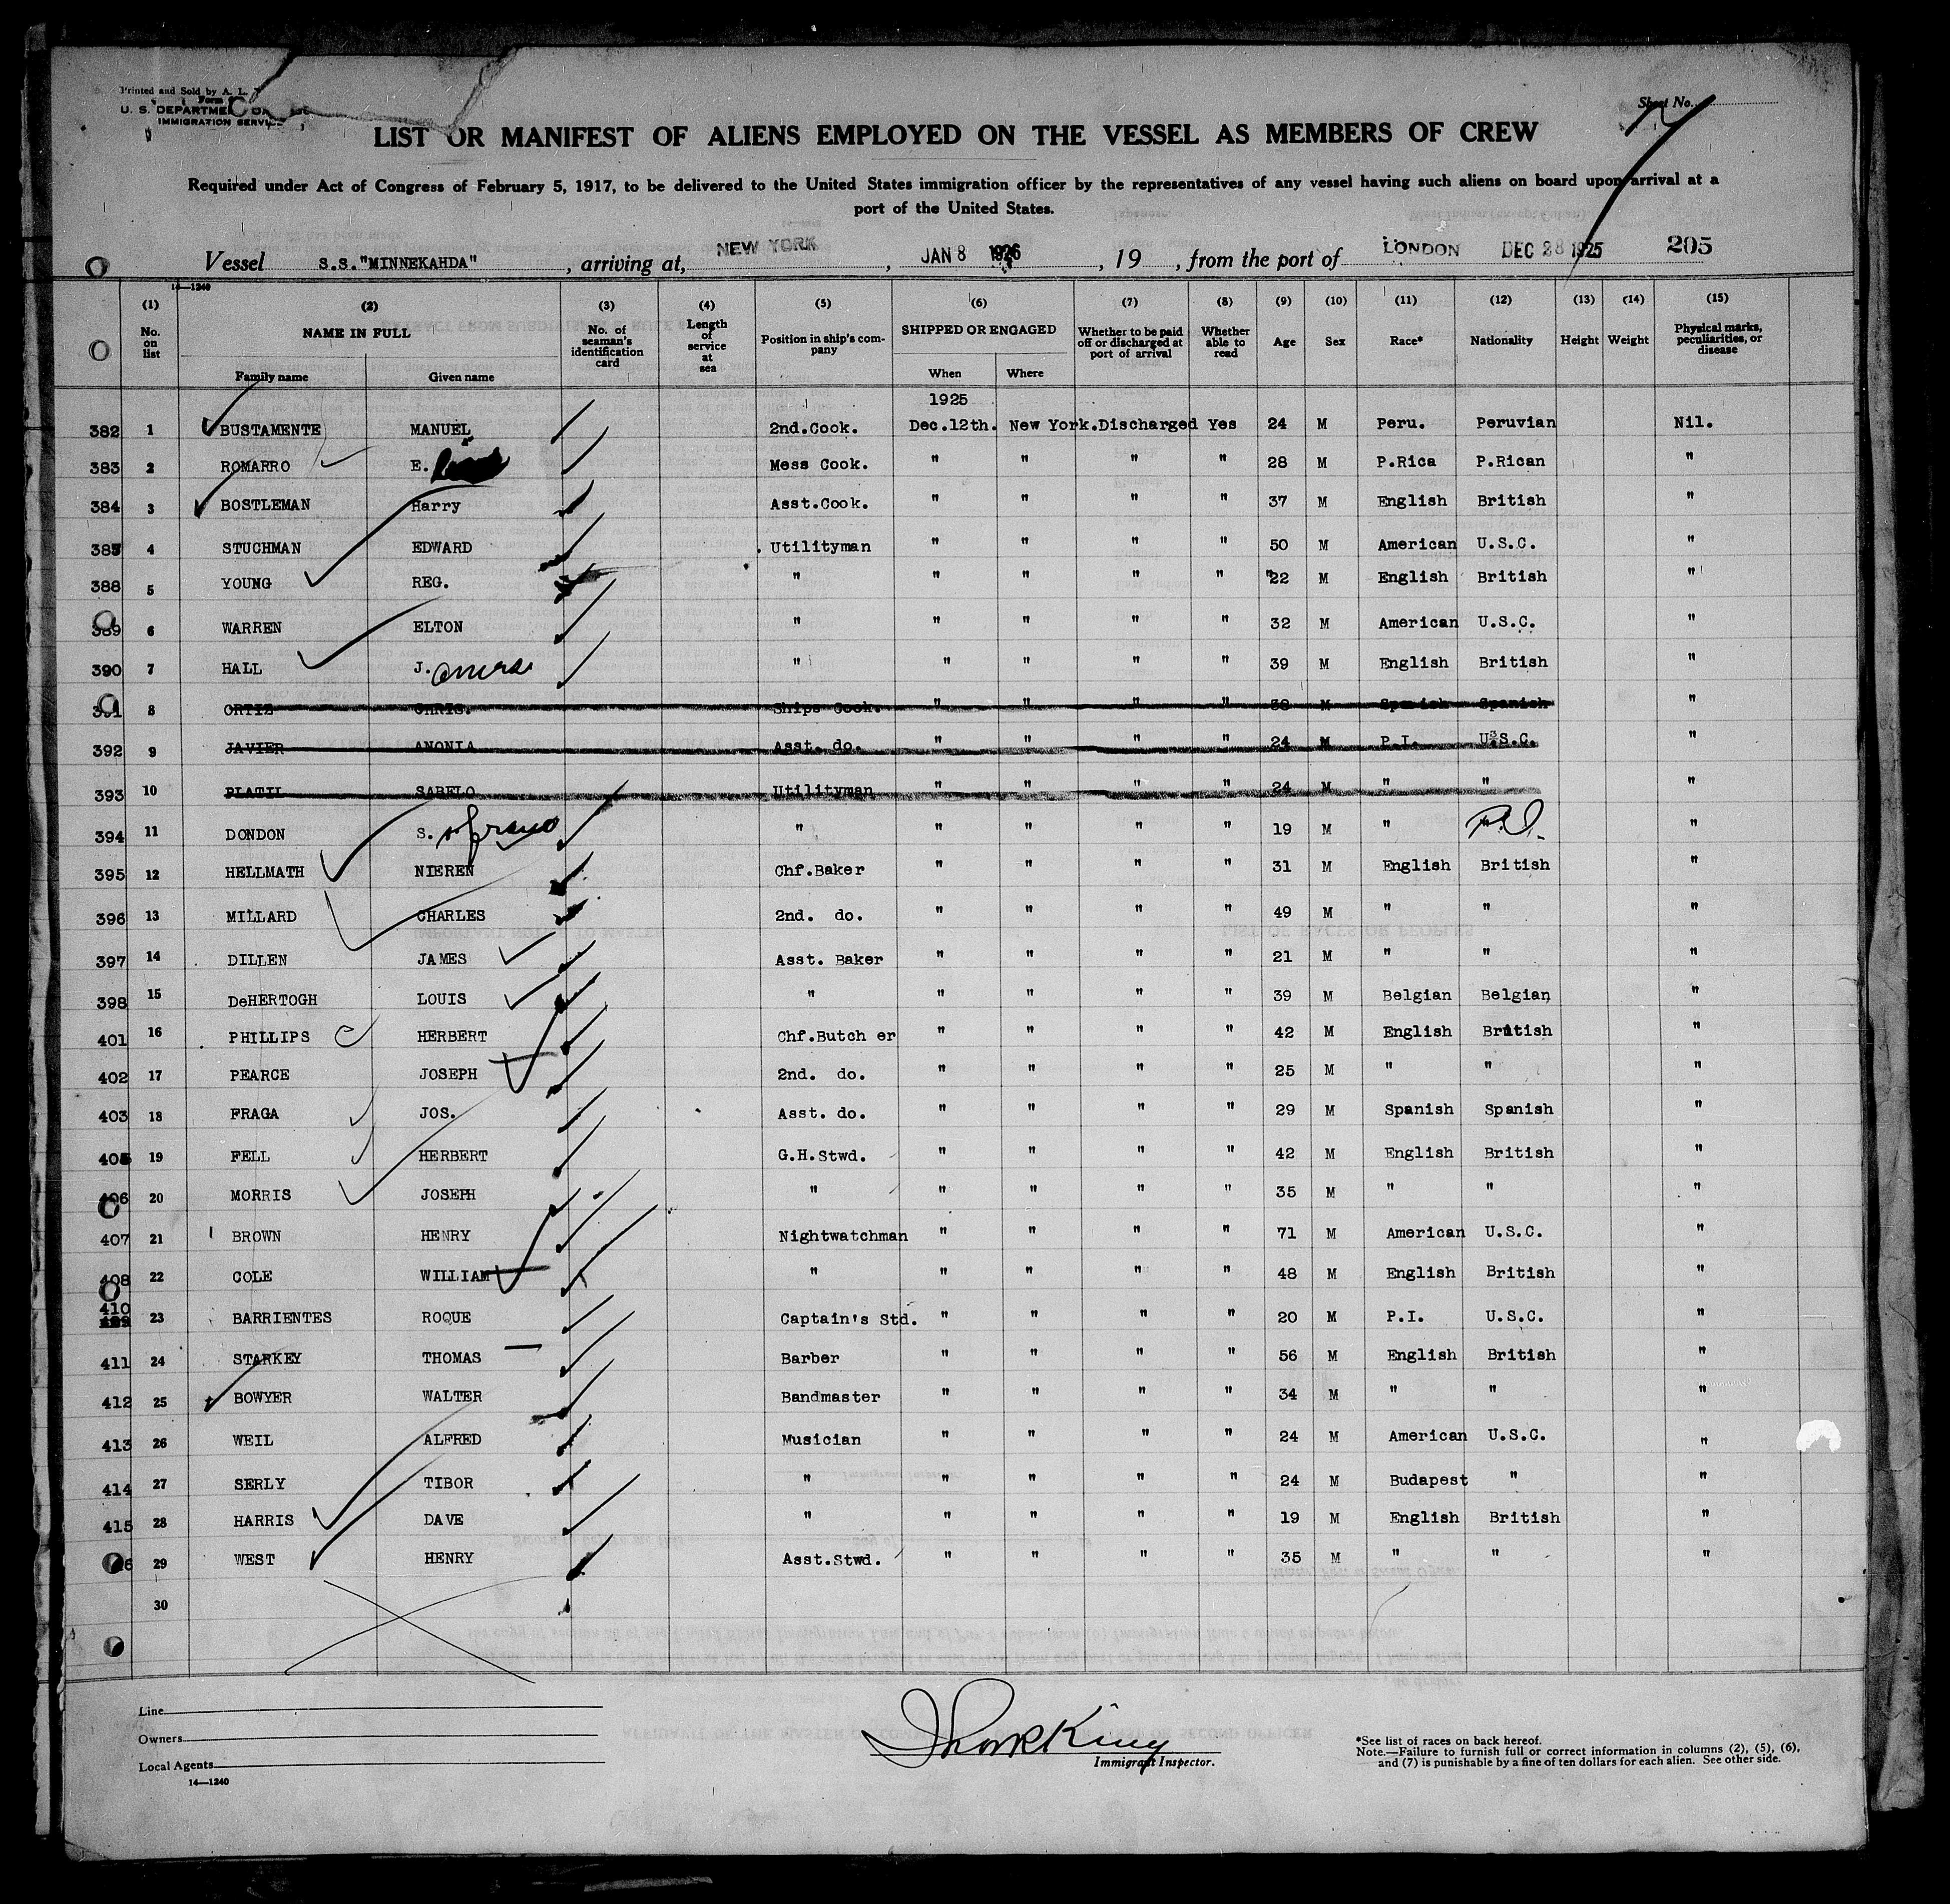 Printed and Sold by A. L.
Form
U. S. DEPARTMENT
IMMIGRATION SERVICE
Sheet No.
LIST OR MANIFEST OF ALIENS EMPLOYED ON THE VESSEL AS MEMBERS OF CREW
Required under Act of Congress of February 5, 1917, to be delivered to the United States immigration officer by the representatives of any vessel having such aliens on board upon arrival at a
port of the United States.
Vessel S.S."MINNEKAHDA" , arriving at, NEW YORK , JAN 8 1926 , 19 , from the port of LONDON DEC 28 1925 205
14—1240
(1) No. on list (2) NAME IN FULL Family name Given name (3) No. of seaman's identification card (4) Length of service at sea (5) Position in ship's company (6) SHIPPED OR ENGAGED When Where (7) Whether to be paid off or discharged at port of arrival (8) Whether able to read (9) Age (10) Sex (11) Race* (12) Nationality (13) Height (14) Weight (15) Physical marks, peculiarities, or disease
1925
382 1 BUSTAMENTE MANUEL 2nd.Cook. Dec.12th. New York. Discharged Yes 24 M Peru. Peruvian Nil.
383 2 ROMARRO E. Mess Cook. " " " " 28 M P.Rica P.Rican "
384 3 BOSTLEMAN Harry Asst.Cook. " " " " 37 M English British "
387 4 STUCHMAN EDWARD Utilityman " " " " 50 M American U.S.C. "
388 5 YOUNG REG. " " " " " 22 M English British "
389 6 WARREN ELTON " " " " " 32 M American U.S.C. "
390 7 HALL J. " " " " " 39 M English British "
391 8 ORTIZ CHRIS. Ships Cook. " " " " 38 M Spanish Spanish "
392 9 JAVIER ANONIA Asst. do. " " " " 24 M P.I. U.S.C. "
393 10 PLATIL SABELO Utilityman " " " " 24 M " " "
394 11 DONDON S. " " " " " 19 M " P.I. "
395 12 HELLMATH NIEREN Chf.Baker " " " " 31 M English British "
396 13 MILLARD CHARLES 2nd. do. " " " " 49 M " " "
397 14 DILLEN JAMES Asst. Baker " " " " 21 M " " "
398 15 DeHERTOGH LOUIS " " " " " 39 M Belgian Belgian "
401 16 PHILLIPS HERBERT Chf.Butch er " " " " 42 M English British "
402 17 PEARCE JOSEPH 2nd. do. " " " " 25 M " " "
403 18 FRAGA JOS. Asst. do. " " " " 29 M Spanish Spanish "
405 19 FELL HERBERT G.H.Stwd. " " " " 42 M English British "
406 20 MORRIS JOSEPH " " " " " 35 M " " "
407 21 BROWN HENRY Nightwatchman " " " " 71 M American U.S.C. "
408 22 COLE WILLIAM " " " " " 48 M English British "
410 23 BARRIENTES ROQUE Captain's Std. " " " " 20 M P.I. U.S.C. "
411 24 STARKEY THOMAS Barber " " " " 56 M English British "
412 25 BOWYER WALTER Bandmaster " " " " 34 M " " "
413 26 WEIL ALFRED Musician " " " " 24 M American U.S.C. "
414 27 SERLY TIBOR " " " " " 24 M Budapest " "
415 28 HARRIS DAVE " " " " " 19 M English British "
29 WEST HENRY Asst.Stwd. " " " " 35 M " " "
30
Line
Owners
Local Agents
14—1240
Immigrant Inspector.
*See list of races on back hereof.
Note.—Failure to furnish full or correct information in columns (2), (5), (6),
and (7) is punishable by a fine of ten dollars for each alien. See other side.